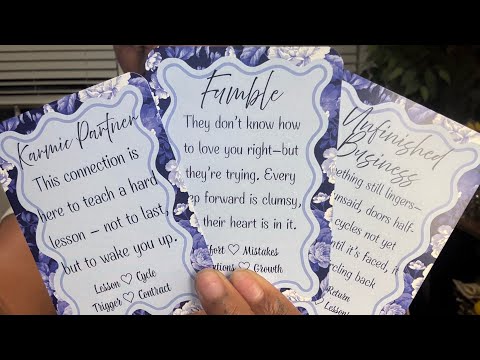 Karmic Partner
This connection is
here to teach a hard
lesson – not to last,
but to wake you up.
Lesson ♡ Cycle
Trigger ♡ Contract
Fumble
They don't know how
to love you right—but
they're trying. Every
ep forward is clumsy,
their heart is in it.
fort ♡ Mistakes
tions ♡ Growth
Unfinished
Business
ething still lingers—
nsaid, doors half-
cycles not yet
ntil it's faced, it
rcling back
Return
Lesson